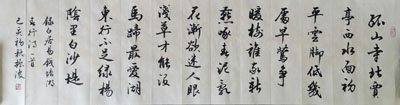 孤山寺北賈
亭西水面初
平雲脚低幾
處早鶯爭
暖樹誰家新
燕啄春泥亂
花漸欲迷人眼
淺草才能沒
馬蹄最愛湖
東行不足綠楊
陰里白沙堤
錄白居易錢塘湖
春行詩一首
己亥初秋